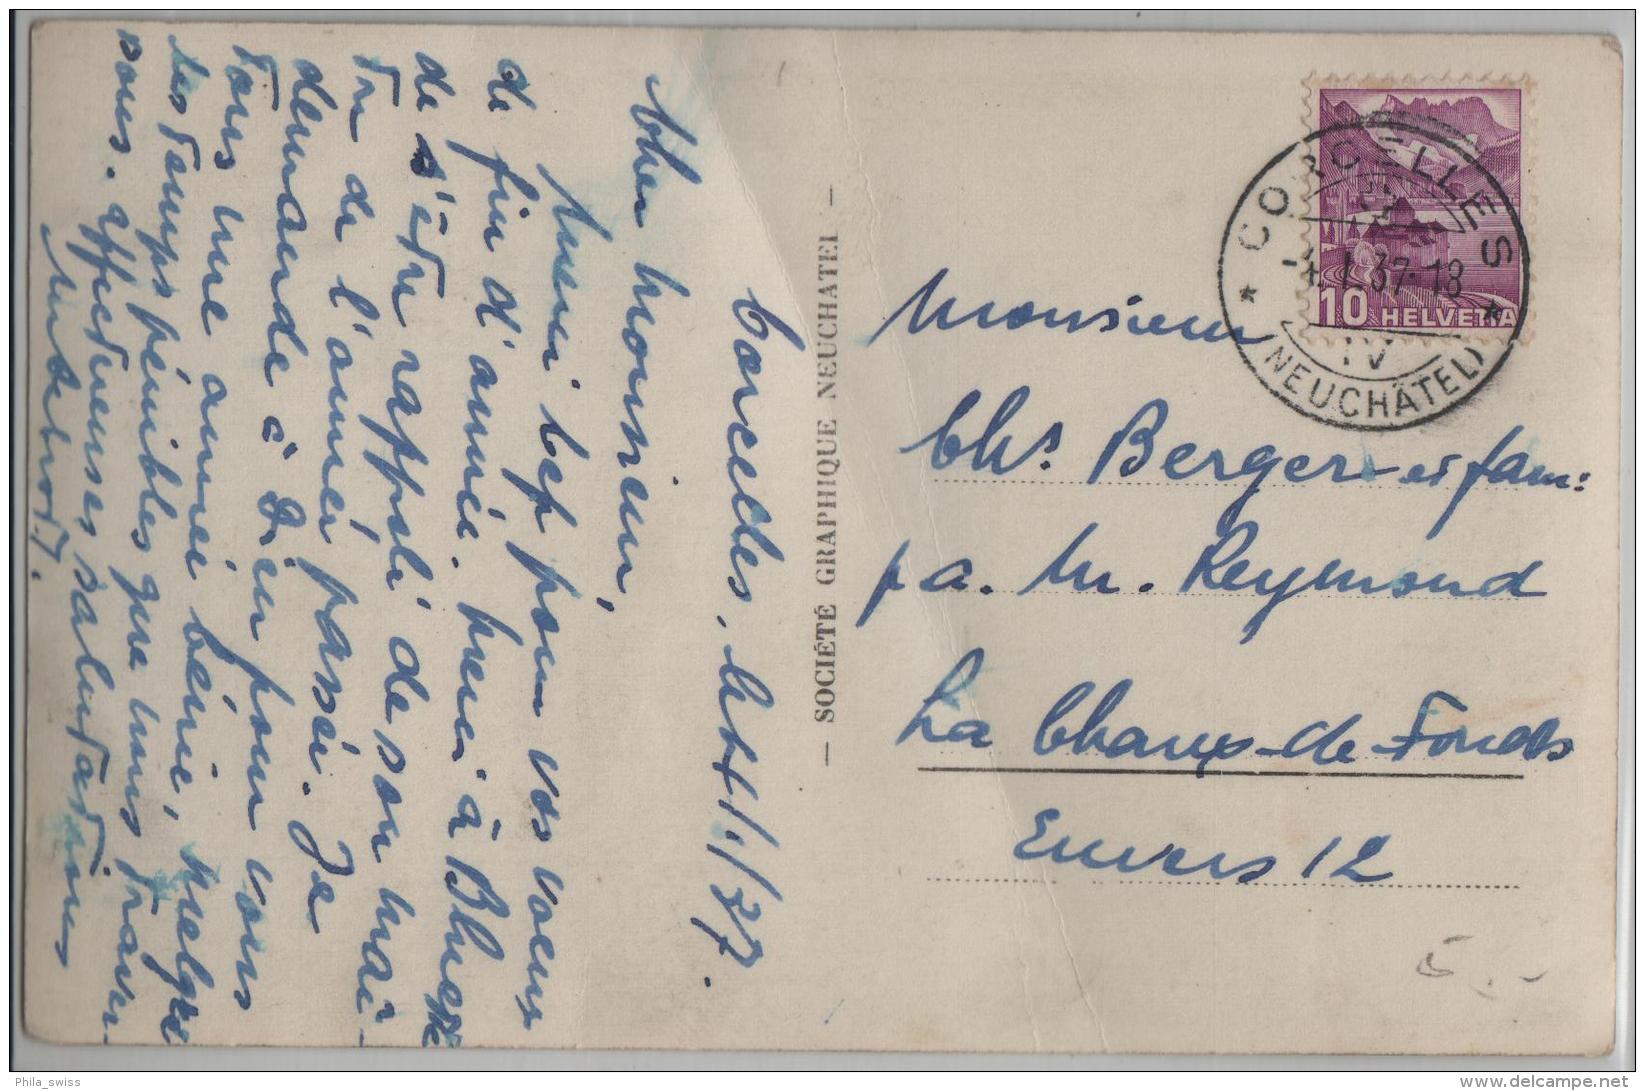 Corcelles, 4/1/37.
Cher monsieur,
Merci bcp pour vos voeux
de fin d'année. merci à
de s'être rappelé de son maî-
tre de l'année passée. Je
demande à Dieu pour vous
tous une année bénie, malgré
les temps pénibles que nous traver-
sons. affectueuses salutations
SOCIÉTÉ GRAPHIQUE NEUCHATEL
CORCELLES
4.I.37-18
IV
(NEUCHÂTEL)
10 HELVETIA
Monsieur
Chs. Berger et fam:
p a. M. Reymond
La Chaux-de-Fonds
Envers 12
Phila_swiss
www.delcampe.net